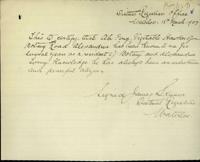 District Registry Office
Waterloo 18th March 1907
This is to certify that Ah Gong, Vegetable Hawker of
Botany Road Alexandria has been known to me for
several years as a resident of Botany and Alexandria
during knowledge he has always been an industrious
and peaceful citizen.
James
District Registrar
Waterloo